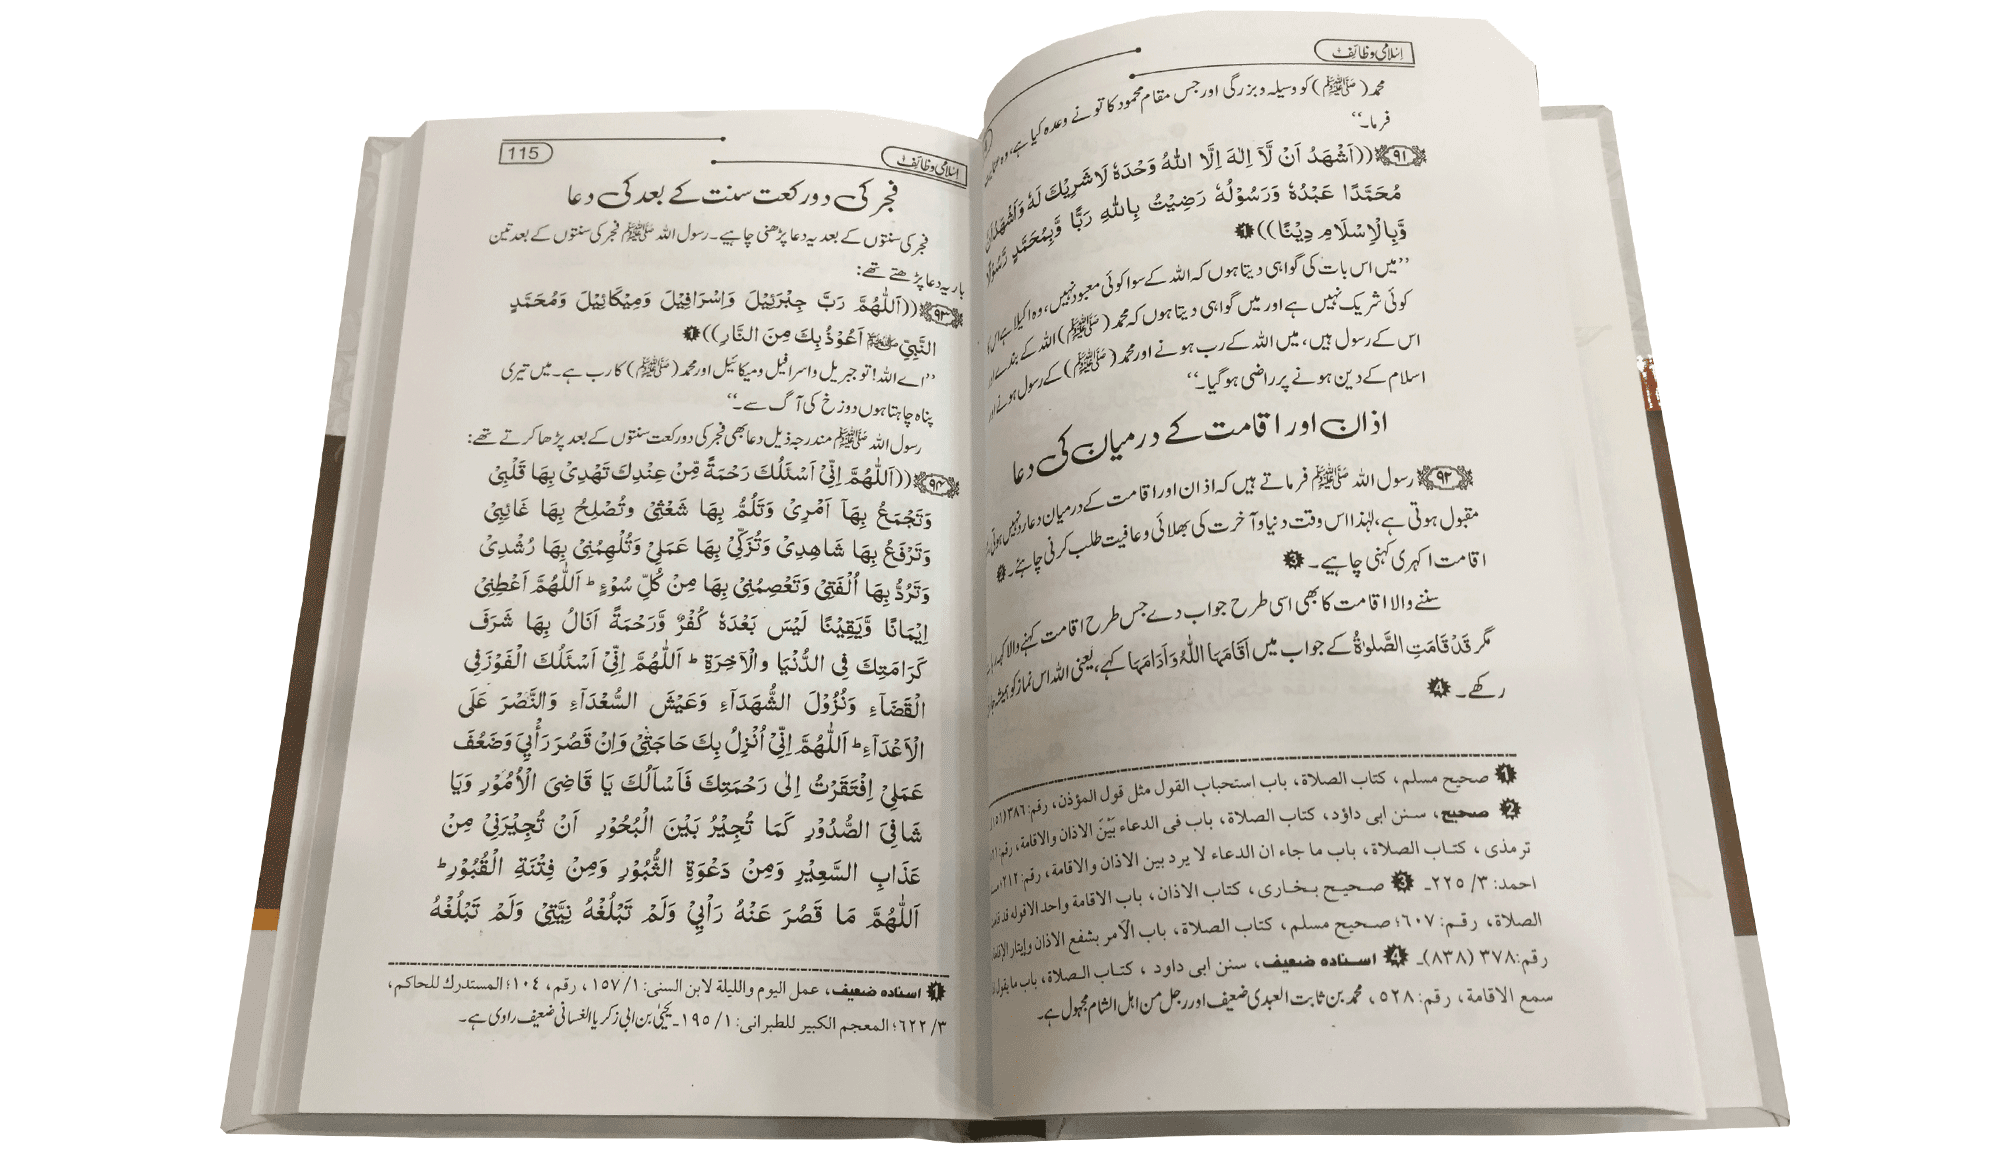 اسلامی وظائف
محمد (ﷺ) کو وسیلہ و بزرگی اور جس مقام محمود کا تو نے وعدہ کیا ہے، وہ
فرما۔‘‘
﴿۹۱﴾ ((اَشْهَدُ اَنْ لَّآ اِلٰهَ اِلَّا اللّٰهُ وَحْدَهٗ لَا شَرِيْكَ لَهٗ وَاَشْهَدُ اَنَّ
مُحَمَّدًا عَبْدُهٗ وَرَسُوْلُهٗ رَضِيْتُ بِاللّٰهِ رَبًّا وَّبِمُحَمَّدٍ رَّسُوْلًا
وَّبِالْاِسْلَامِ دِيْنًا)) ❶
’’میں اس بات کی گواہی دیتا ہوں کہ اللہ کے سوا کوئی معبود نہیں، وہ اکیلا ہے اس کا
کوئی شریک نہیں ہے اور میں گواہی دیتا ہوں کہ محمد (ﷺ) اللہ کے بندے اور
اس کے رسول ہیں، میں اللہ کے رب ہونے اور محمد (ﷺ) کے رسول ہونے اور
اسلام کے دین ہونے پر راضی ہو گیا۔‘‘
اذان اور اقامت کے درمیان کی دعا
﴿۹۲﴾ رسول اللہ ﷺ فرماتے ہیں کہ اذان اور اقامت کے درمیان دعا رد نہیں ہوتی
مقبول ہوتی ہے، لہٰذا اس وقت دنیا و آخرت کی بھلائی و عافیت طلب کرنی چاہئے۔ ❷
اقامت اکہری کہنی چاہیے۔ ❸
سننے والا اقامت کا بھی اسی طرح جواب دے جس طرح اقامت کہنے والا کہہ رہا
مگر قَدْ قَامَتِ الصَّلٰوةُ کے جواب میں اَقَامَهَا اللّٰهُ وَاَدَامَهَا کہے، یعنی اللہ اس نماز کو ہمیشہ
رکھے۔ ❹
❶ صحیح مسلم، کتاب الصلاة، باب استحباب القول مثل قول المؤذن، رقم: ٣٨٦ (٨٥١)
❷ صحیح، سنن ابی داؤد، کتاب الصلاة، باب فی الدعاء بَیْنَ الاذان والاقامة، رقم:
ترمذی، کتاب الصلاة، باب ما جاء ان الدعاء لا یرد بین الاذان والاقامة، رقم: ٢١٢
احمد: ٣/ ٢٢٥۔ ❸ صحیح بخاری، کتاب الاذان، باب الاقامة واحد الاقوله قد قامت
الصلاة، رقم: ٦٠٧؛ صحیح مسلم، کتاب الصلاة، باب الأمر بشفع الاذان وإیتار الإقامة
رقم: ٣٧٨ (٨٣٨)۔ ❹ اسناده ضعیف، سنن ابی داود، کتاب الصلاة، باب ما یقول اذا
سمع الاقامة، رقم: ٥٢٨، محمد بن ثابت العبدی ضعیف اور رجل من اہل الشام مجہول ہے۔
اسلامی وظائف 115
فجر کی دو رکعت سنت کے بعد کی دعا
فجر کی سنتوں کے بعد یہ دعا پڑھنی چاہیے۔ رسول اللہ ﷺ فجر کی سنتوں کے بعد تین
بار یہ دعا پڑھتے تھے:
﴿۹۳﴾ ((اَللّٰهُمَّ رَبَّ جِبْرَئِيْلَ وَاِسْرَافِيْلَ وَمِيْكَائِيْلَ وَمُحَمَّدٍ
النَّبِيِّ ﷺ اَعُوْذُ بِكَ مِنَ النَّارِ)) ❶
’’اے اللہ! تو جبریل و اسرافیل و میکائیل اور محمد (ﷺ) کا رب ہے۔ میں تیری
پناہ چاہتا ہوں دوزخ کی آگ سے۔‘‘
رسول اللہ ﷺ مندرجہ ذیل دعا بھی فجر کی دو رکعت سنتوں کے بعد پڑھا کرتے تھے:
﴿۹۴﴾ ((اَللّٰهُمَّ اِنِّيْ اَسْئَلُكَ رَحْمَةً مِّنْ عِنْدِكَ تَهْدِيْ بِهَا قَلْبِيْ
وَتَجْمَعُ بِهَآ اَمْرِيْ وَتَلُمُّ بِهَا شَعْثِيْ وتُصْلِحُ بِهَا غَائِبِيْ
وَتَرْفَعُ بِهَا شَاهِدِيْ وَتُزَكِّيْ بِهَا عَمَلِيْ وَتُلْهِمُنِيْ بِهَا رُشْدِيْ
وَتَرُدُّ بِهَا اُلْفَتِيْ وَتَعْصِمُنِيْ بِهَا مِنْ كُلِّ سُوْءٍ ط اَللّٰهُمَّ اَعْطِنِيْ
اِيْمَانًا وَّيَقِيْنًا لَيْسَ بَعْدَهٗ كُفْرٌ وَّرَحْمَةً اَنَالُ بِهَا شَرَفَ
كَرَامَتِكَ فِي الدُّنْيَا والْاٰخِرَةِ ط اَللّٰهُمَّ اِنِّيْ اَسْئَلُكَ الْفَوْزَفِي
الْقَضَآءِ وَنُزُوْلَ الشُّهَدَآءِ وَعَيْشَ السُّعَدَآءِ وَالنَّصْرَ عَلَى
الْاَعْدَآءِ ط اَللّٰهُمَّ اِنِّيْ اُنْزِلُ بِكَ حَاجَتِيْ وَاِنْ قَصُرَ رَأْيِيْ وَضَعُفَ
عَمَلِيْ اِفْتَقَرْتُ اِلٰى رَحْمَتِكَ فَاَسْاَلُكَ يَا قَاضِيَ الْاُمُوْرِ وَيَا
شَافِيَ الصُّدُوْرِ كَمَا تُجِيْرُ بَيْنَ الْبُحُوْرِ اَنْ تُجِيْرَنِيْ مِنْ
عَذَابِ السَّعِيْرِ وَمِنْ دَعْوَةِ الثُّبُوْرِ وَمِنْ فِتْنَةِ الْقُبُوْرِ ط
اَللّٰهُمَّ مَا قَصُرَ عَنْهُ رَاْيِيْ وَلَمْ تَبْلُغْهُ نِيَّتِيْ وَلَمْ تَبْلُغْهُ
❶ اسناده ضعیف، عمل الیوم واللیلة لابن السنی: ١/ ١٥٧، رقم، ١٠٤؛ المستدرك للحاكم،
٣/ ٦٢٢؛ المعجم الكبير للطبرانی: ١/ ١٩٥۔ یحییٰ بن ابی زکریا الغسانی ضعیف راوی ہے۔